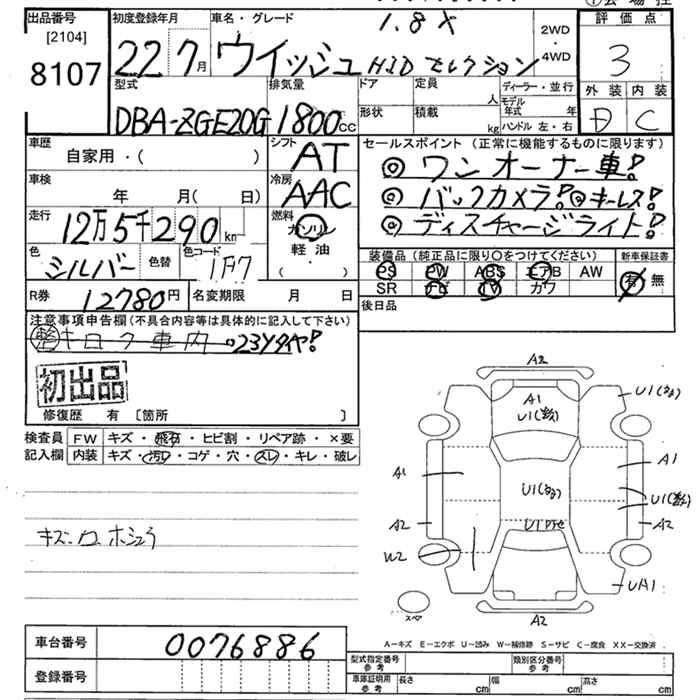 出品番号
[2104]
8107
初度登録年月
22 7月
車名・グレード
1.8X
ウイッシュ HID セレクション
2WD
・
4WD
評価点
3
外装 内装
D C
型式
DBA-ZGE20G
排気量
1800cc
ドア
定員
人
形状
積載
kg
ディーラー・並行
モデル年式 年
ハンドル 左・右
車歴
自家用・( )
シフト
AT
車検
年 月( 日)
冷房
AAC
走行
12万5千290km
燃料
ガソリン
軽・油
( )
色
シルバー
色替
色コード
1F7
R券
12780円
名変期限 月 日
セールスポイント(正常に機能するものに限ります)
◎ワンオーナー車!
◎バックカメラ!◎キーレス!
◎ディスチャージライト!
装備品(純正品に限り○をつけてください)
新車保証書
PS PW ABS エアB AW
SR ナビ TV カワ
有・無
後日品
注意事項申告欄(不具合内容等は具体的に記入して下さい)
初出品
修復歴 有 〔箇所 〕
検査員記入欄
FW キズ・飛石・ヒビ割・リペア跡・×要
内装 キズ・汚れ・コゲ・穴・スレ・キレ・破レ
A2
A1
U1
A1
A1
U1
U1
A2
A2
W2
UA1
A2
スペア
A-キズ E-エクボ U-凹み W-補修跡 S-サビ C-腐食 XX-交換済
車台番号
0076886
登録番号
型式指定番号
参考
類別区分番号
参考
車庫証明用
参考
長さ cm 幅 cm 高さ cm